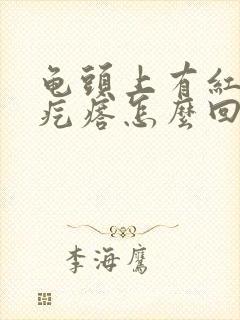 龟頭上有紅
疙瘩怎麼回
李海鷹